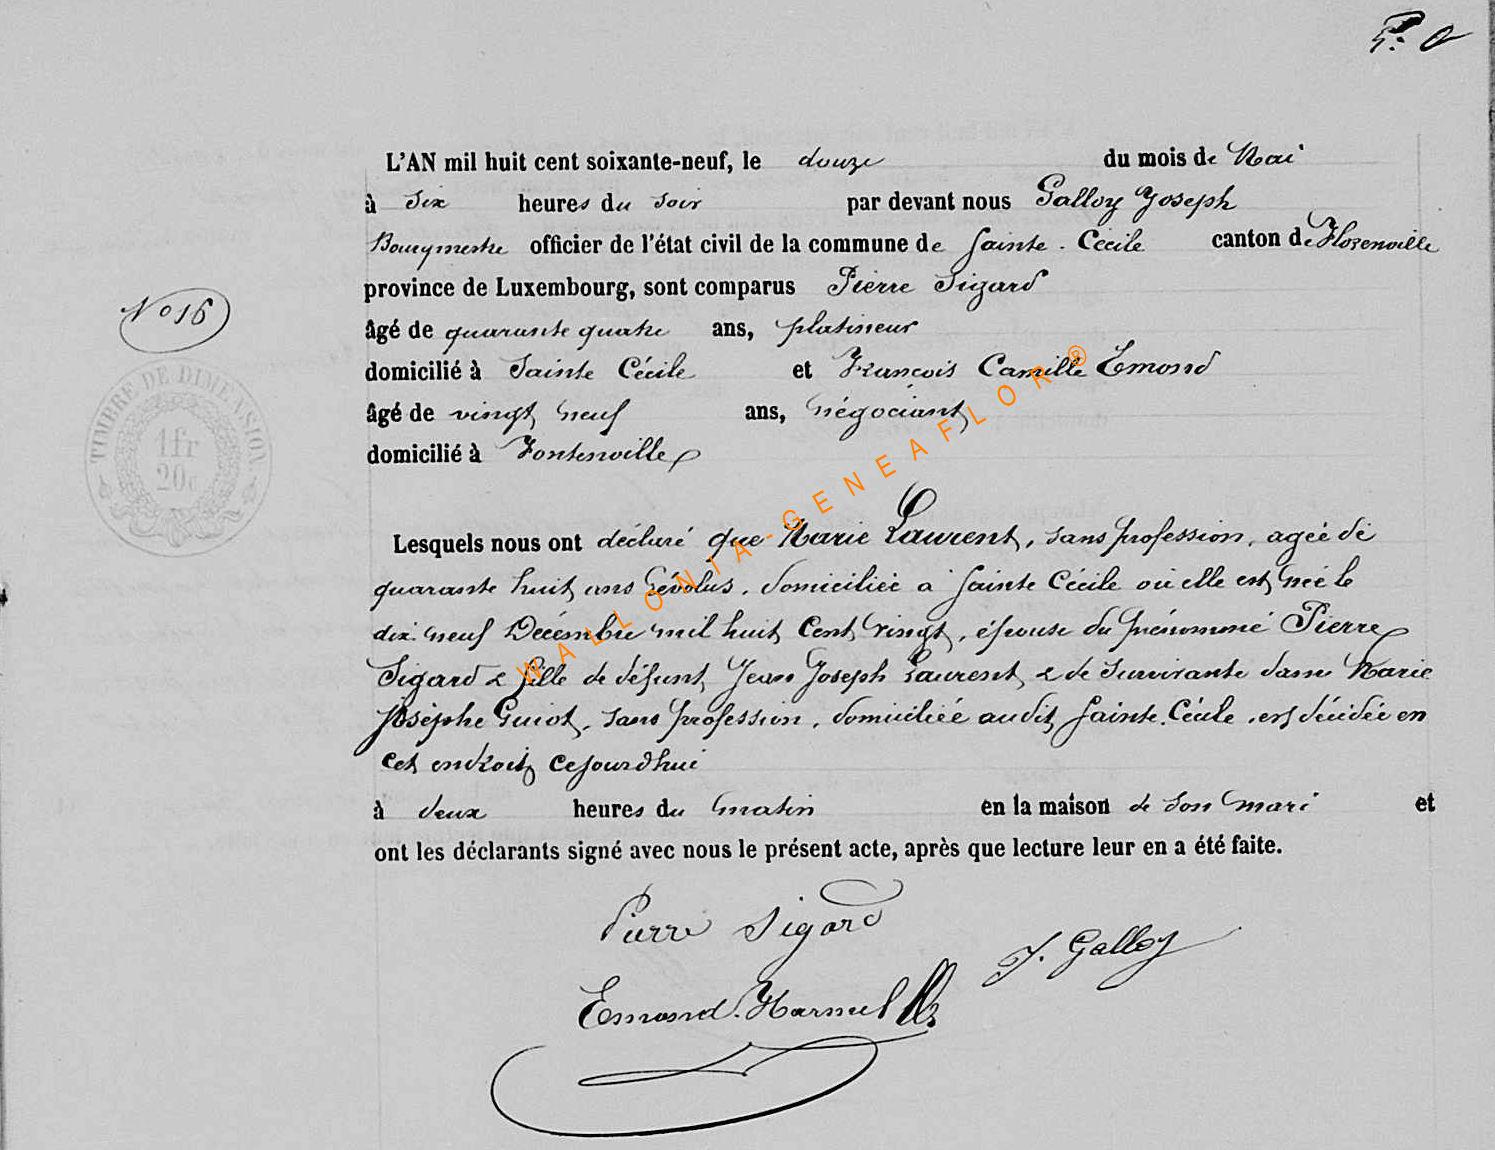 L'AN mil huit cent soixante-neuf, le douze du mois de Mai
à six heures du soir par devant nous Galloy Joseph
Bourgmestre officier de l'état civil de la commune de Sainte-Cécile canton de Florenville
province de Luxembourg, sont comparus Pierre Sigard
N° 16
âgé de quarante quatre ans, platineur
domicilié à Sainte Cécile et François Camille Emond
âgé de vingt neuf ans, négociant
domicilié à Fontenoille
TIMBRE DE DIMENSION.
1fr
20c
WALLONIA-GENEAFLOR®
Lesquels nous ont déclaré que Marie Laurent, sans profession, agée de
quarante huit ans révolus, domiciliée à Sainte Cécile où elle est née le
dix-neuf Décembre mil huit cent vingt, épouse du prénommé Pierre
Sigard & fille de défunt Jean Joseph Laurent & de survivante dame Marie
Josèphe Guiot, sans profession, domiciliée audit Sainte-Cécile, est décédée en
cet endroit cejourd'hui
à deux heures du matin en la maison de son mari et
ont les déclarants signé avec nous le présent acte, après que lecture leur en a été faite.
Pierre Sigard
J. Galloy
Emond-Harmel